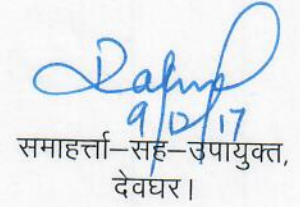 9/12/17
समाहर्त्ता–सह–उपायुक्त,
देवघर।